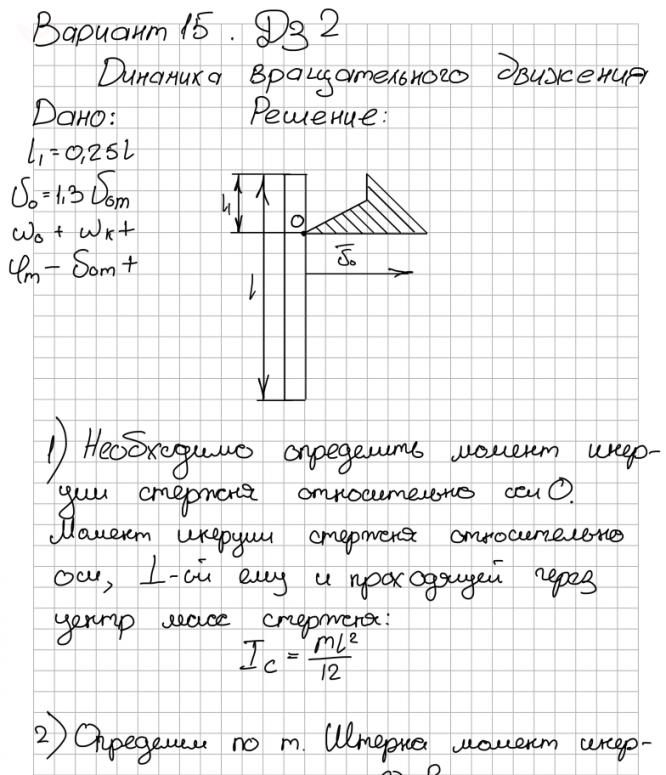 Вариант 15. Дз 2
Динамика вращательного движения
Дано: Решение:
l₁ = 0,25l
δ₀ = 1,3 δ₀m
ω₀ + ωк +
φm − δ₀m +
h
O
l
δ̅₀
1) Необходимо определить момент инер-
ции стержня относительно оси О.
Момент инерции стержня относительно
оси, ⊥-ой ему и проходящей через
центр масс стержня:
I_c = ml²/12
2) Определим по т. Штерна момент инер-